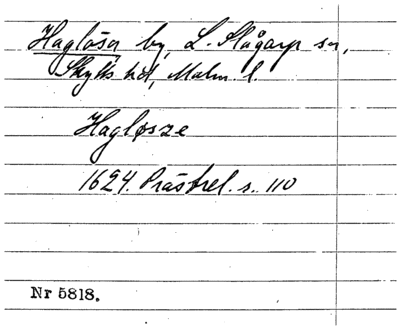 Haglösa by, L. Slågarp sn,
Skytts hd, Malm. l.
Hagløsze
1624. Prästrel. s. 110
Nr 5818.